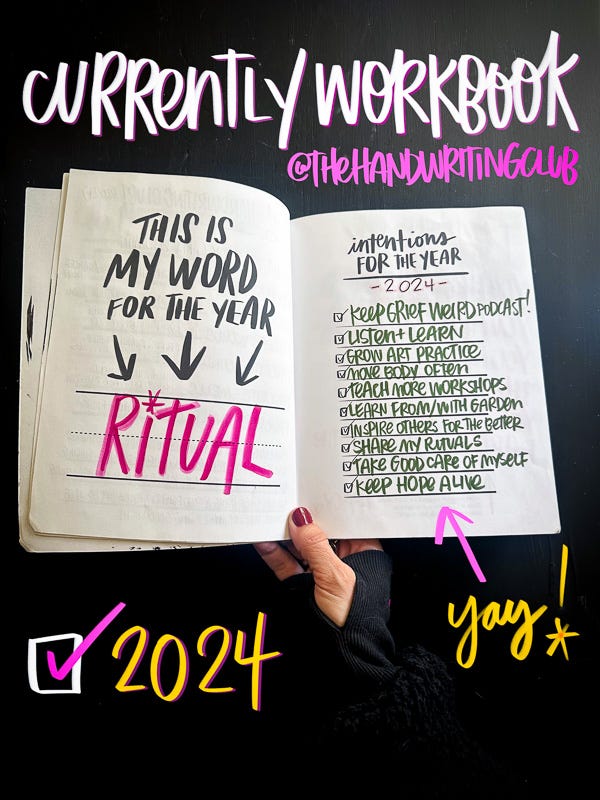 CURRENTLY WORKBOOK
@THEHANDWRITINGCLUB
THIS IS
MY WORD
FOR THE YEAR
RITUAL
intentions
FOR THE YEAR
- 2024 -
KEEP GRIEF WEIRD PODCAST!
LISTEN + LEARN
GROW ART PRACTICE
MOVE BODY OFTEN
TEACH MORE WORKSHOPS
LEARN FROM/WITH GARDEN
INSPIRE OTHERS FOR THE BETTER
SHARE MY RITUALS
TAKE GOOD CARE OF MYSELF
KEEP HOPE ALIVE
yay!
2024